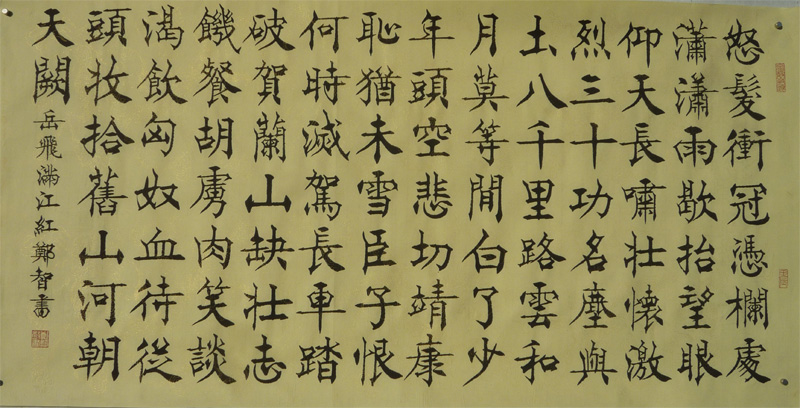 怒髮衝冠憑欄處
瀟瀟雨歇抬望眼
仰天長嘯壯懷激
烈三十功名塵與
土八千里路雲和
月莫等閒白了少
年頭空悲切靖康
恥猶未雪臣子恨
何時滅駕長車踏
破賀蘭山缺壯志
饑餐胡虜肉笑談
渴飲匈奴血待從
頭收拾舊山河朝
天闕
岳飛滿江紅鄭智書